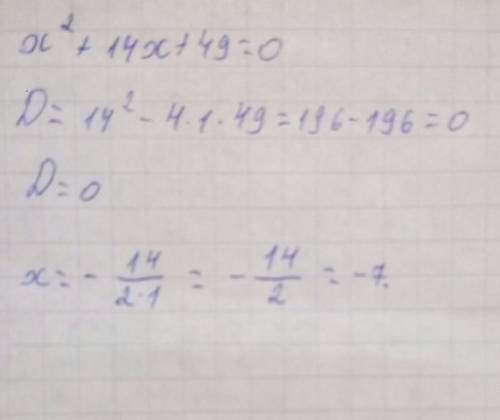 x² + 14x + 49 = 0
D = 14² - 4·1·49 = 196 - 196 = 0
D = 0
x = - 14/2·1 = - 14/2 = -7.